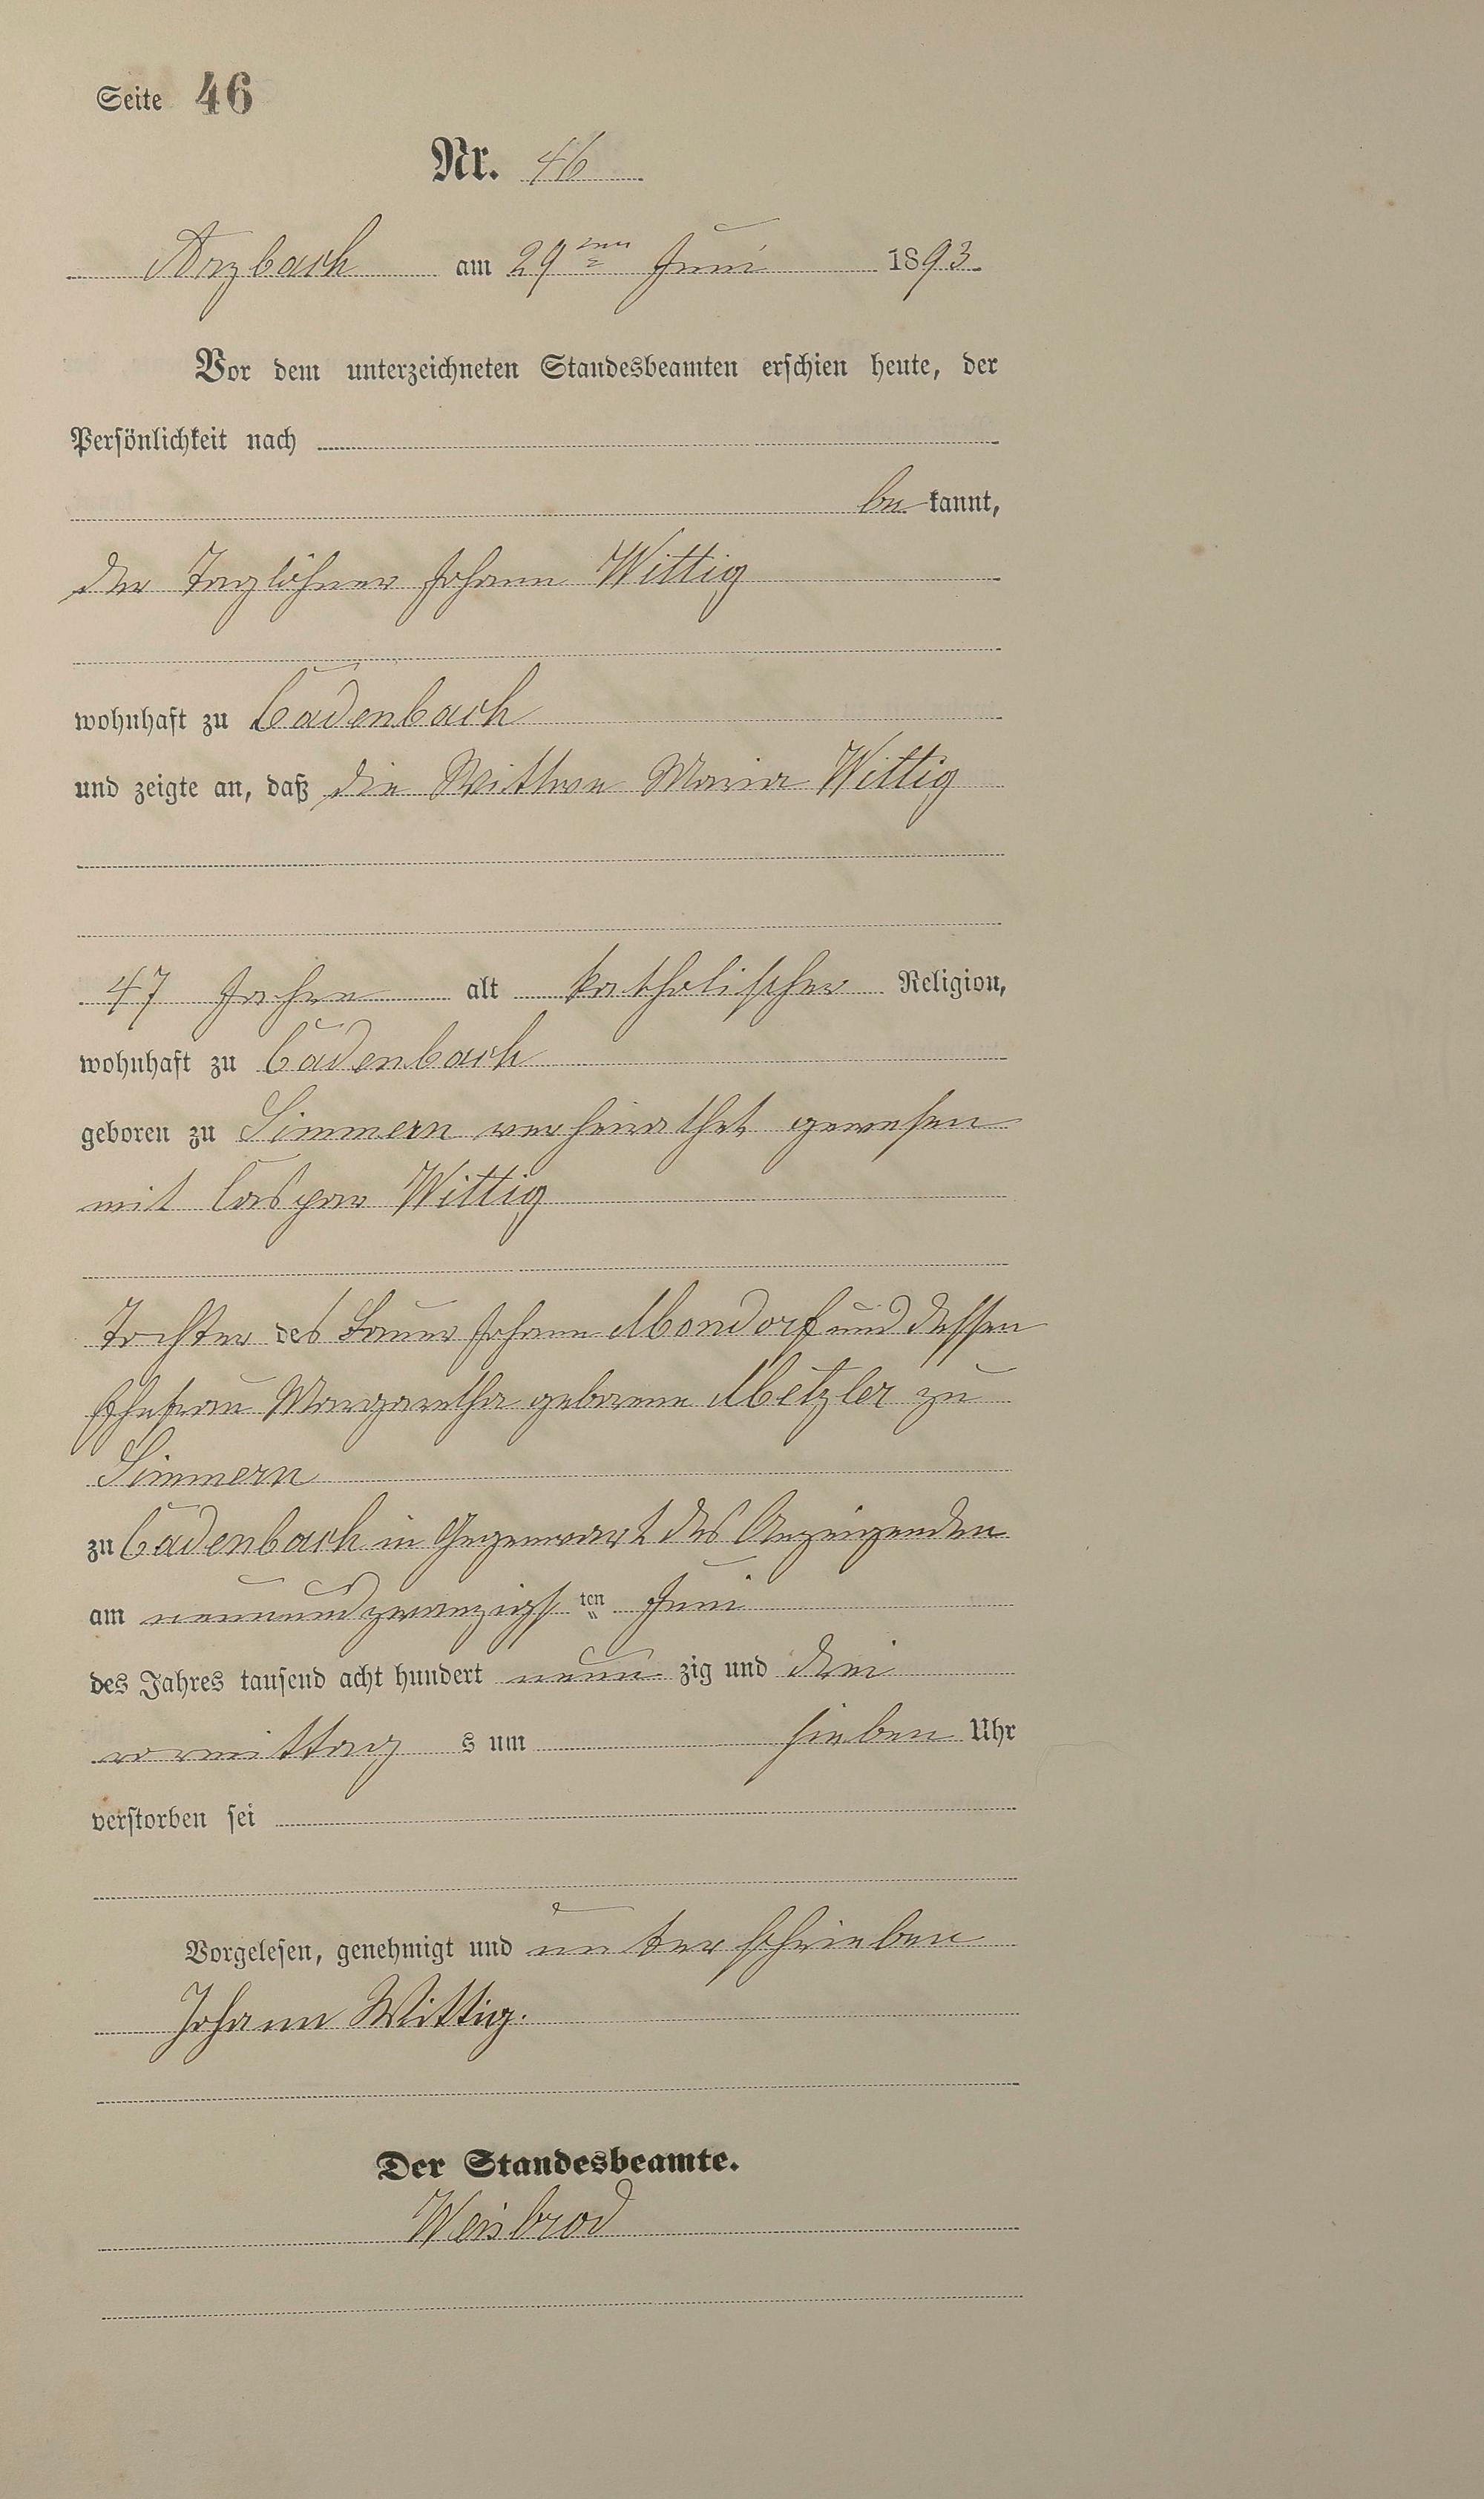 Seite 46
Nr. 46
Arzbach am 29ten Juni 1893.
Vor dem unterzeichneten Standesbeamten erschien heute, der
Persönlichkeit nach
be kannt,
der Taglöhner Johann Wittig
wohnhaft zu Cadenbach
und zeigte an, daß die Wittwe Maria Wittig
47 Jahre alt katholischer Religion,
wohnhaft zu Cadenbach
geboren zu Simmern verheirathet gewesen
mit Caspar Wittig
Tochter des Bauer Johann Mondorf und dessen
Ehefrau Margaretha geborene Metzler zu
Simmern
zu Cadenbach in Gegenwart des Anzeigenden
am neunundzwanzigst ten Juni
des Jahres tausend acht hundert neun zig und drei
vormittag s um sieben Uhr
verstorben sei
Vorgelesen, genehmigt und unterschrieben
Johann Wittig.
Der Standesbeamte.
Weisbrod